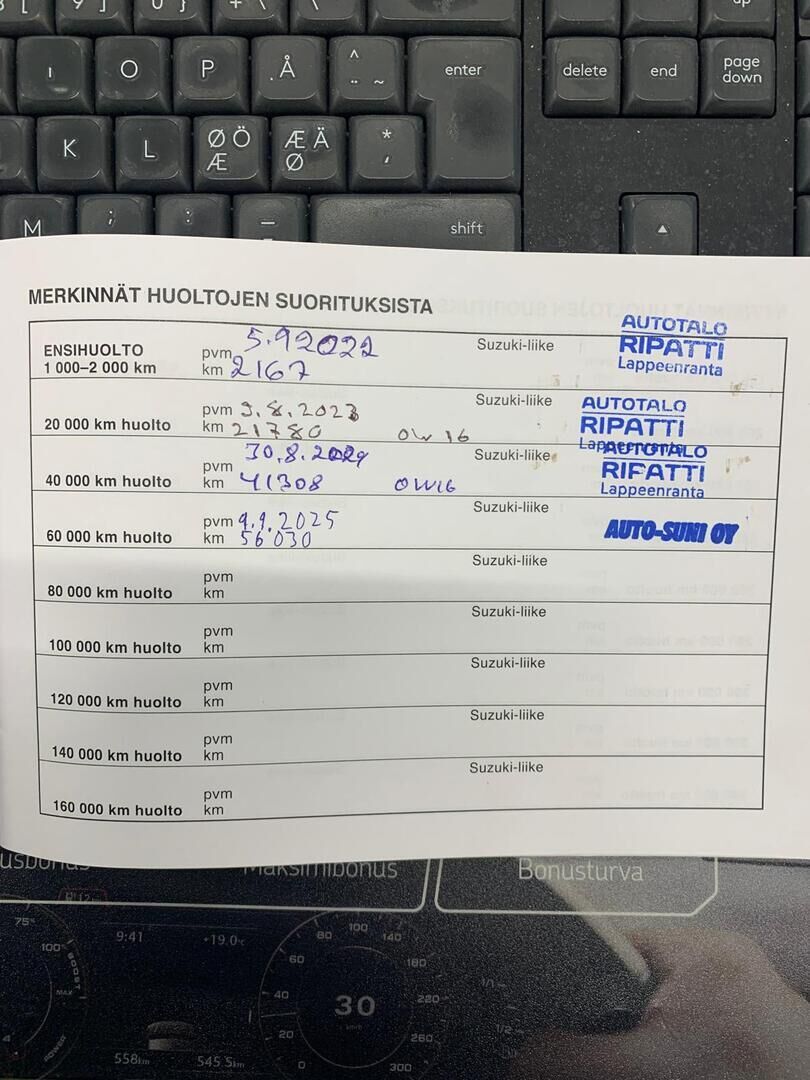 O P Å ^ ¨ ~ enter delete end page down
K L Ø Ö Æ Æ Ä Ø * '
M ; : _ shift
MERKINNÄT HUOLTOJEN SUORITUKSISTA
ENSIHUOLTO pvm 5.9.2022 Suzuki-liike AUTOTALO
1 000–2 000 km km 2167 RIPATTI
Lappeenranta
20 000 km huolto pvm 9.8.2023 Suzuki-liike AUTOTALO
km 21780 OW 16 RIPATTI
Lappeenranta
40 000 km huolto pvm 30.8.2024 Suzuki-liike AUTOTALO
km 41308 OW16 RIPATTI
Lappeenranta
60 000 km huolto pvm 9.9.2025 Suzuki-liike AUTO-SUNI OY
km 56030
80 000 km huolto pvm Suzuki-liike
km
100 000 km huolto pvm Suzuki-liike
km
120 000 km huolto pvm Suzuki-liike
km
140 000 km huolto pvm Suzuki-liike
km
160 000 km huolto pvm Suzuki-liike
km
Maksimibonus Bonusturva
9:41 +19.0°C
75% 100% BOOST MAX POWER
0 20 40 60 80 100 140 180 220 260 300
30
km/h
558km 545.5km
1/1
1/2